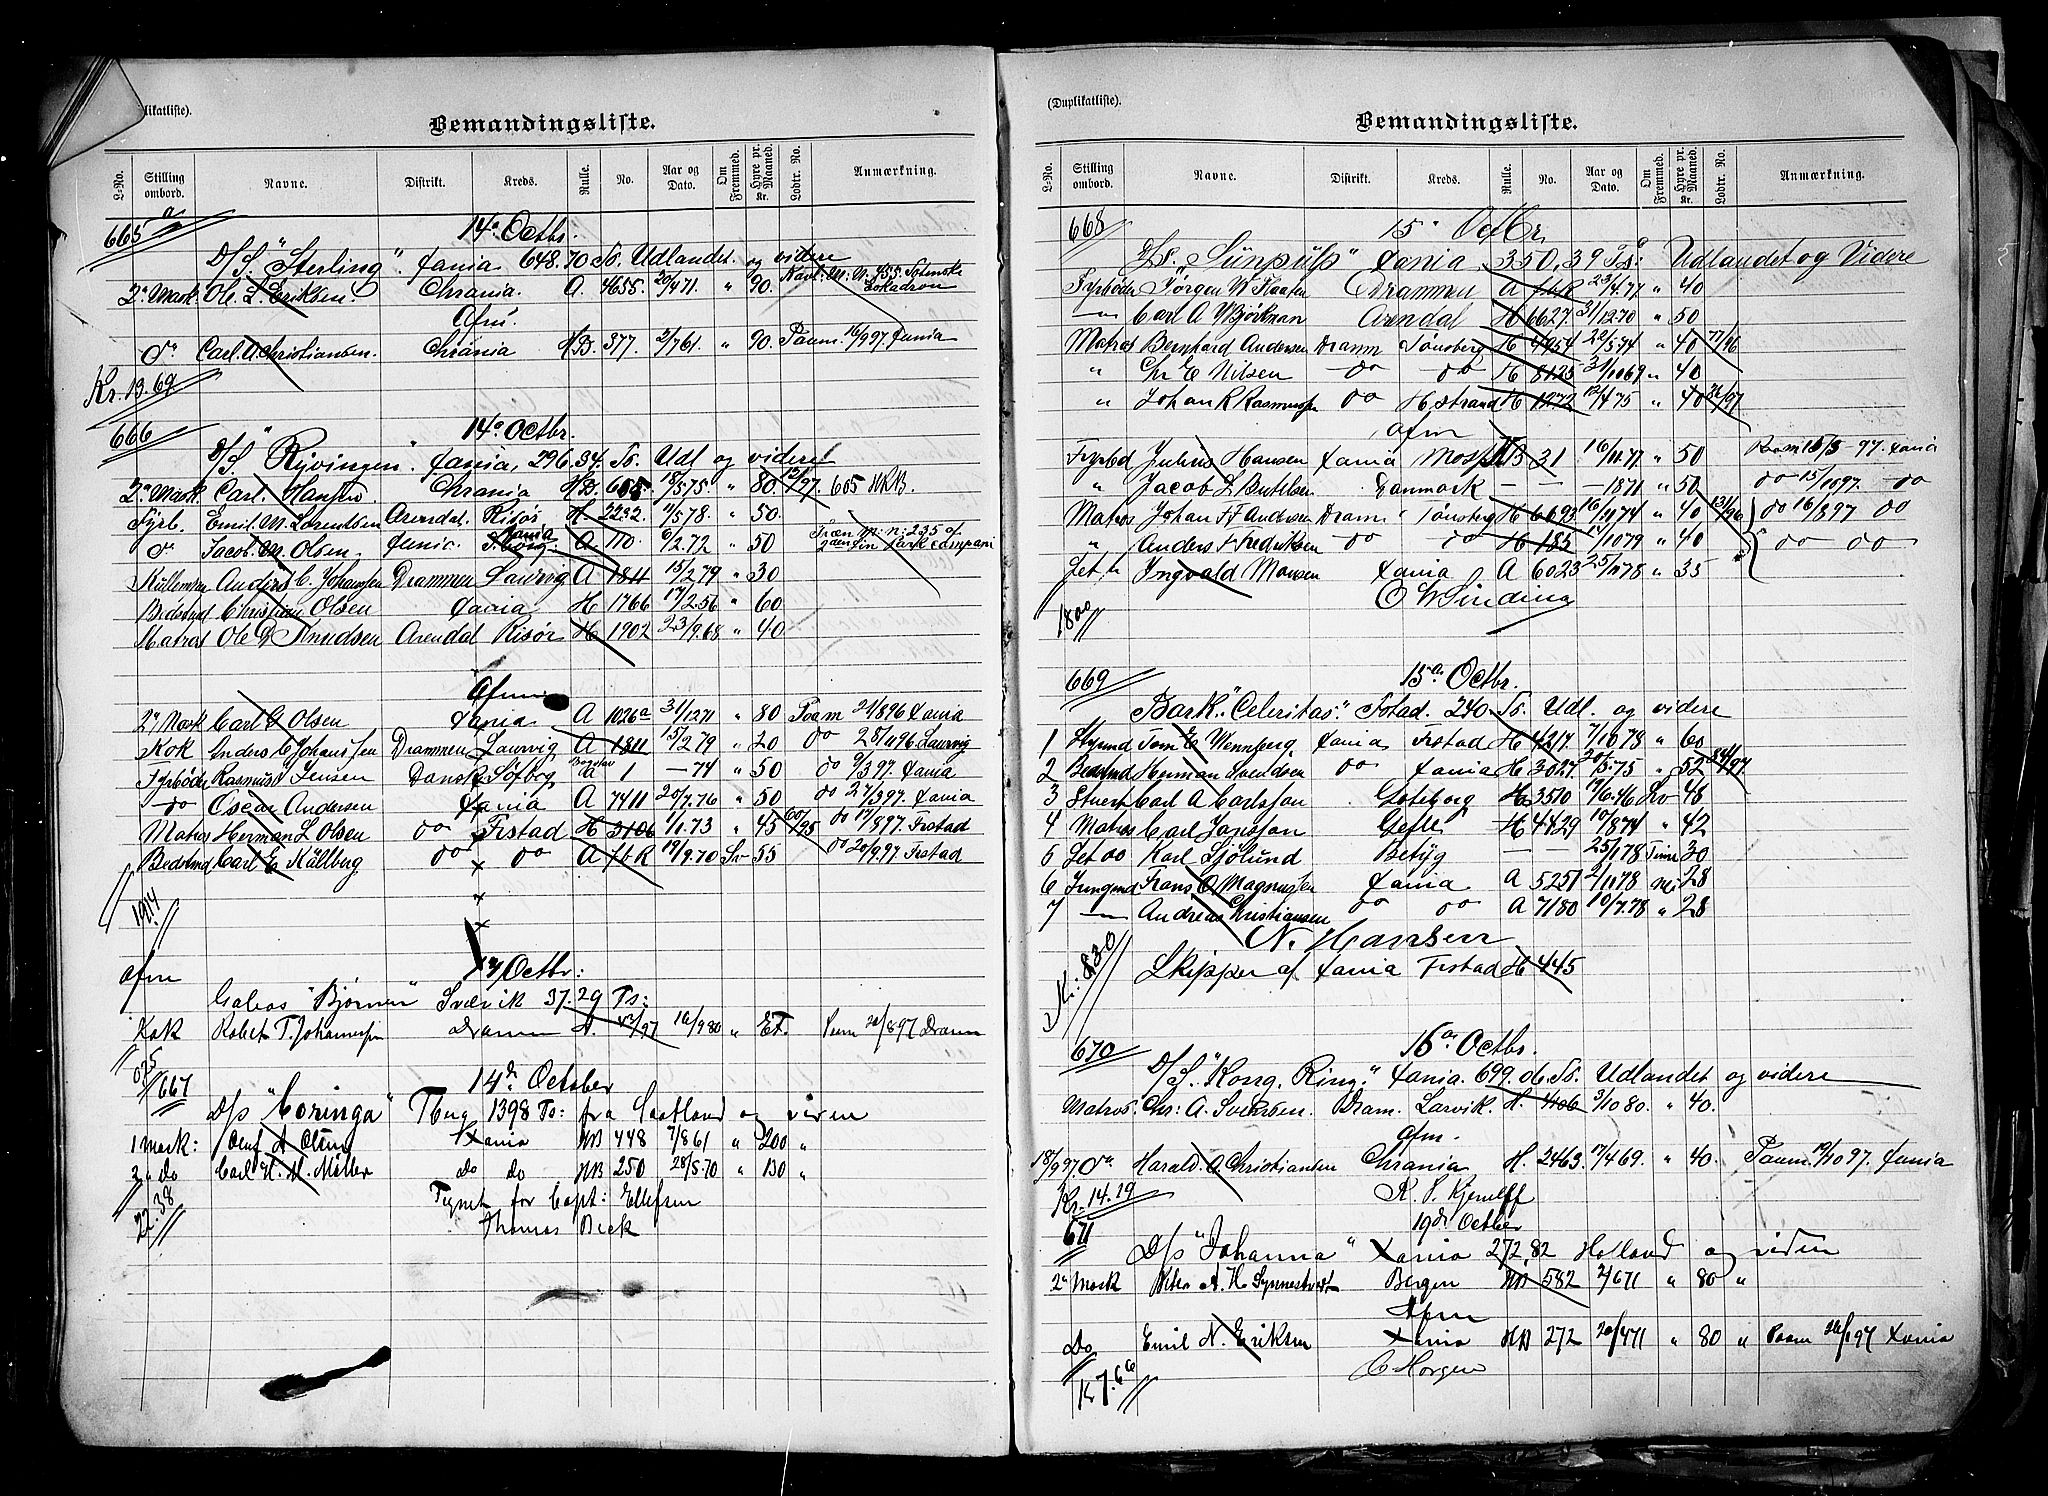 (Duplikatliste).
Bemandingsliste.
L-No. Stilling ombord. Navne. Distrikt. Kreds. Rulle. No. Aar og Dato. Om Fremmed. Hyre pr. Maaned. Kr. Lodtr. No. Anmærkning.
665 14de Octbr.
D/S. "Sterling". Xania 648.70 Ts. Udlandet og videre
2n Mask Ole L. Eriksen. Chrania. A. 4655. 20/4 71. " 90.
Afm.
do Carl. A. Christiansen. Chrania NB. 377. 2/7 61. " 90. Paam. 16/9 97. Xania
Kr. 13.69
666 14de Octbr.
D/S. "Ryvingen". Xania, 296.34. Ts. Udl og videre
2n Mask. Carl. Hansen. Chrania NB. 605. 18/5 75. " 80. 12/97. 605 NB.
Fyrb. Emil. M. Lorentsen Arendal. Risør H. 2232. 11/5 78. " 50.
do Jacob. M. Olsen. Xania. A 110. 6/2 72. " 50
Anders C. Johanssen Drammen Laurvig A 1811 15/2 79 " 30
Christian Olsen Xania H 1766 17/2 56 " 60
Matros Ole G Knudsen Arendal Risør H 1902 23/9 68 " 40
Afm
2n Mask Carl G Olsen Xania A 1026a 31/12 71 " 80 Paam 21/8 96 Xania
Kok Anders C Johanssen Drammen Laurvig A 1811 15/2 79 " 20 do 28/11 96 Laurvig
Fyrbøder Rasmus Jensen Dansk A 1 – 74 " 50 do 9/3 97. Xania
do Oscar Andersen Xania A 7411 20/7 76 " 50 do 27/3 97. Xania
Matros Herman L Olsen do Frstad H 3106 1/1 73 " 45 60/95 do 17/8 97 Frstad
Bedstmd Carl E Källberg do do A fbR 19/9 70 Sv 55 do 20/9 97 Frstad
1914
afm 14/ Octbr:
Galeas "Bjørnen" Svelvik 37.29 Ts:
Kok Robert T. Johannessen Dramm A. 43/97 16/9 80 " Et. Paam 20/8 97 Dramm
075
667 14de October
D/s "Coringa" Tbrg 1398 Ts: fra Scotland og viden
1 Mask: Oluf A Olsen Xania NB 448 7/8 61 " 200 "
2 " Do Carl H. M. Møller do do NB 250 28/5 70 " 130 "
Tegnet for Capt: Ellefsen
Thomas Beck
22.38
(Duplikatliste).
Bemandingsliste.
L-No. Stilling ombord. Navne. Distrikt. Kreds. Rulle. No. Aar og Dato. Om Fremmed. Hyre pr. Maaned. Kr. Lodtr. No. Anmærkning.
668 15de Octbr
Ds. "Xania 350,39 Ts: Udlandet og Videre
Fyrbøder Jørgen W Kaaten Drammen A fbR 23/4 77 " 40
— Carl A Bjørkman Arendal H 6627 31/12 70 " 50
Matros Bernhard Andersen Dramm Tønsberg H 4954 22/5 74 " 40 71/96
" Chr E Nilsen do do H 8125 31/10 69 " 40
" Johan R Rasmussen do H.strand H 1272 12/4 75 " 40 26/97
Afm
Fyrbd Julius Hansen Xania Moss NB 31 16/11 77 " 50 Paam 15/3 – 97. Xania
" Jacob L Butelsen Danmark — — – 1871 " 50 do 15/10 97. do
Matros Johan F F Andersen Dramm Tønsberg H 6693 16/11 74 " 40 131/96 do 16/8 97 do
" Anders F Fredriksen do do H 185 11/10 79 " 40 do do
Jet.m Ingvald Monsen Xania A 6023 25/1 78 " 35
C W Sinding
1800
669 15de Octbr.
Bark. "Celeritas". Fstad. 240. Ts. Udl. og videre
1 Styrmd Tom E Wennberg. Xania Frstad H 4217. 7/10 78 " 60
2 Bedstmd Herman Svendsen do Xania H 3027. 20/5 75 " 52 84/97
3 Stuert Carl A Carlsson Gøteborg H 3510 17/6 46 Sv 48
4 Matros Carl Jansson Gefle H 4429 10/8 74 " 42
5 Jet do Karl Sjölund — — 25/1 78 30
6 Jungmd Frans O Magnussen Xania A 5251 2/11 78 nei 28
7 — Andreas Christiansen do do A 7180 10/7 78 " 28
N. Hansen
Skipper af Xania Frstad H 445
Kr: 8.30
670 16de Octbr.
D/S. "Kong. Ring." Xania. 699.06. Ts. Udlandet og videre
Matros. Chr: A. Svensen. Dram. Larvik. H. 4106 3/10 80. " 40.
Afm.
18/9 97 do Harald. A. Christiansen Chrania H. 2463. 17/4 69. " 40. Paam. 19/10 97. Xania
Kr. 14.19
671 19de October
D/s "Johanna" Xania 272,82 Holland og viden
2n Mask Peter A. H. Synnestvedt Bergen NB 582 2/6 71 " 80 "
Afm
Do Emil N. Eriksen Xania NB 272 20/4 71 " 80 " Paam Xania
C Horgen
Kr 7.66